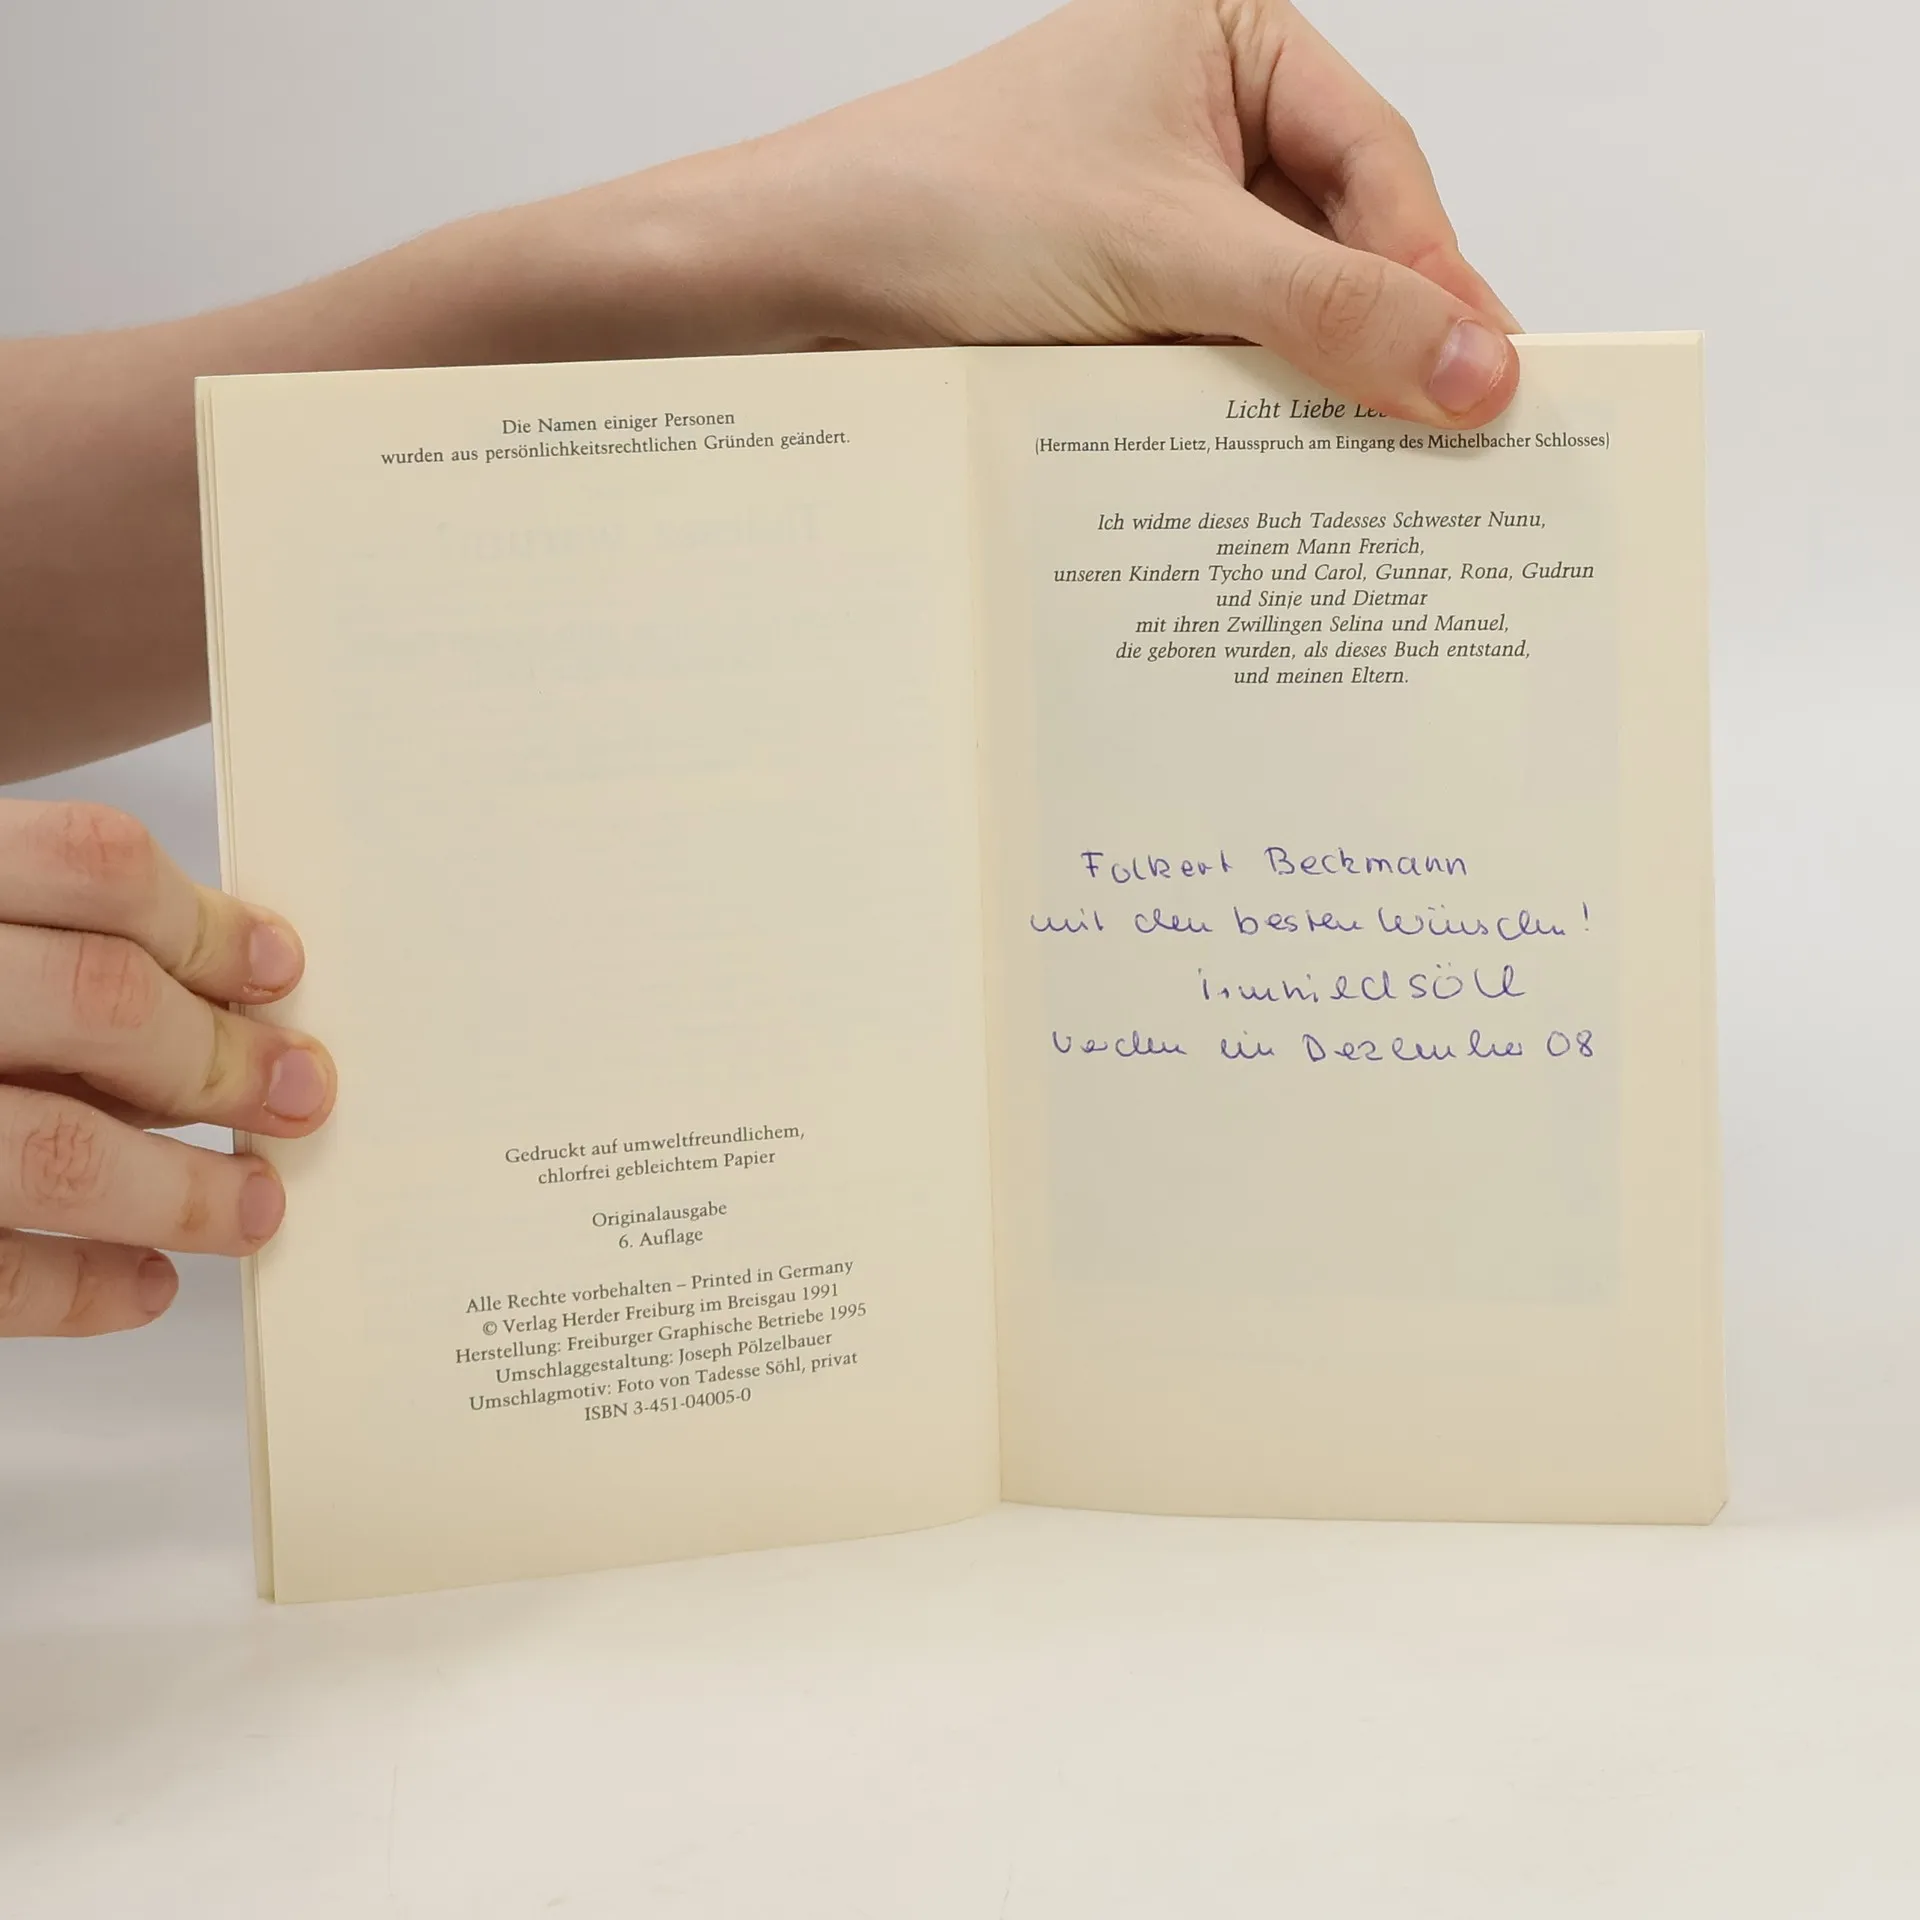 Die Namen einiger Personen
wurden aus persönlichkeitsrechtlichen Gründen geändert.
Gedruckt auf umweltfreundlichem,
chlorfrei gebleichtem Papier
Originalausgabe
6. Auflage
Alle Rechte vorbehalten – Printed in Germany
© Verlag Herder Freiburg im Breisgau 1991
Herstellung: Freiburger Graphische Betriebe 1995
Umschlaggestaltung: Joseph Pölzelbauer
Umschlagmotiv: Foto von Tadesse Söhl, privat
ISBN 3-451-04005-0
Licht Liebe
(Hermann Herder Lietz, Hausspruch am Eingang des Michelbacher Schlosses)
Ich widme dieses Buch Tadesses Schwester Nunu,
meinem Mann Frerich,
unseren Kindern Tycho und Carol, Gunnar, Rona, Gudrun
und Sinje und Dietmar
mit ihren Zwillingen Selina und Manuel,
die geboren wurden, als dieses Buch entstand,
und meinen Eltern.
Folkert Beckmann
mit den besten Wünschen!
im Dezember 08